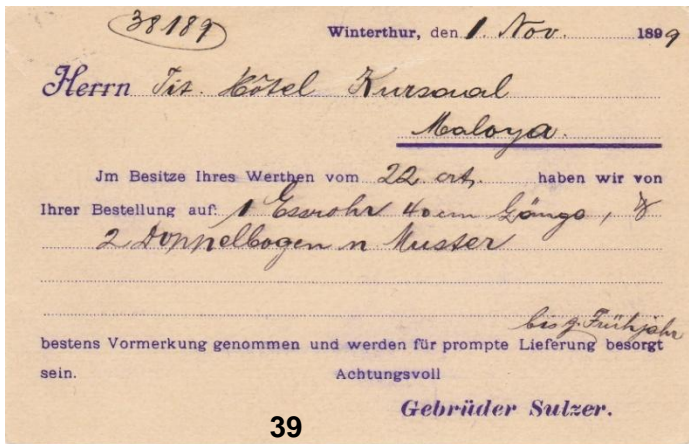 38189
Winterthur, den 1. Nov. 1899
Herrn Tit. Hôtel Kursaal
Maloya.
Jm Besitze Ihres Werthen vom 22. crt. haben wir von
Ihrer Bestellung auf: 1 Essrohr 40 cm Länge, &
2 Doppelbogen n Muster
bis z. Frühjahr
bestens Vormerkung genommen und werden für prompte Lieferung besorgt
sein. Achtungsvoll
Gebrüder Sulzer.
39